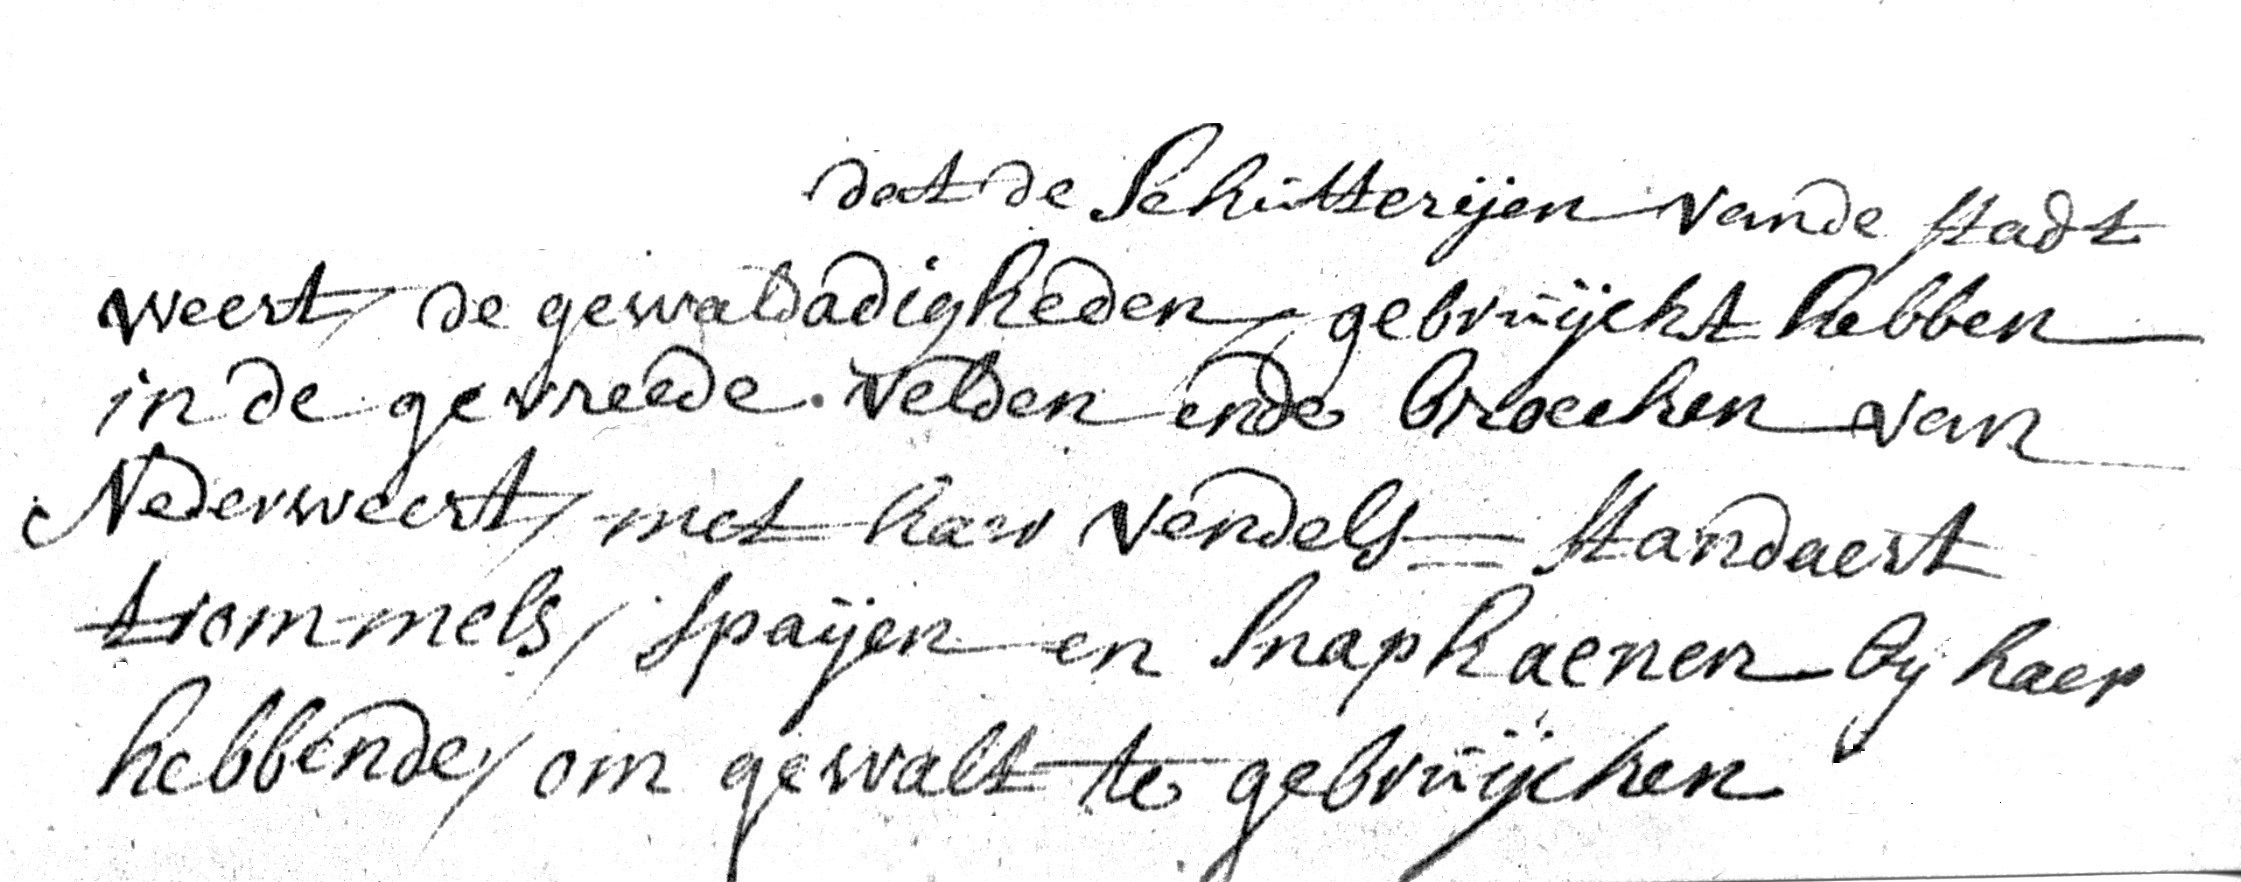 dat de Schutterijen vande stadt
weert / de gewaldadigheden / gebruijckt hebben
in de gevreede velden ende broecken van
Nederweert / met haer vendels = standaert
trommels / spaijen en snaphaenen by haer
hebbende / om gewalt te gebruijcken